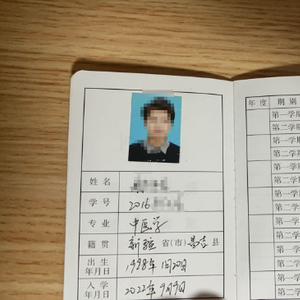 年度 期别
姓名
学号 2016
专业 中医学
籍贯 新疆 省(市) 昌吉 县
出生年月日 1998年1月20日
入学年月日 2022年9月9日
第一学期
第二学期
第一学期
第二学期
第一学期
第二学期
第一学期
第二学期
第一学期